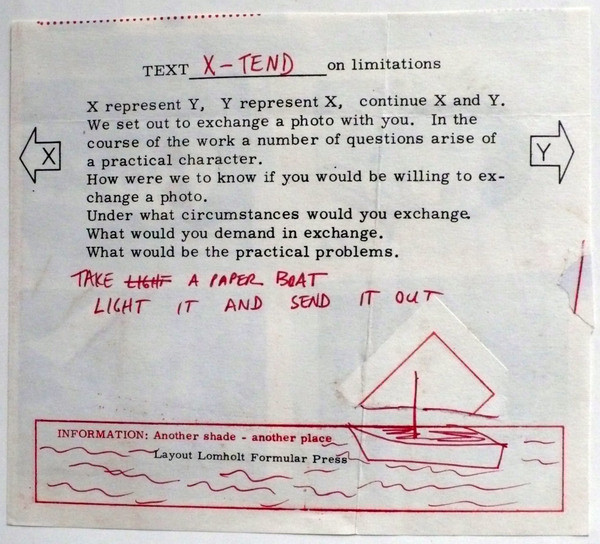 TEXT X-TEND on limitations
X represent Y, Y represent X, continue X and Y.
We set out to exchange a photo with you. In the
course of the work a number of questions arise of
a practical character.
X
Y
How were we to know if you would be willing to ex-
change a photo.
Under what circumstances would you exchange.
What would you demand in exchange.
What would be the practical problems.
TAKE LIGHT A PAPER BOAT
LIGHT IT AND SEND IT OUT
INFORMATION: Another shade - another place
Layout Lomholt Formular Press